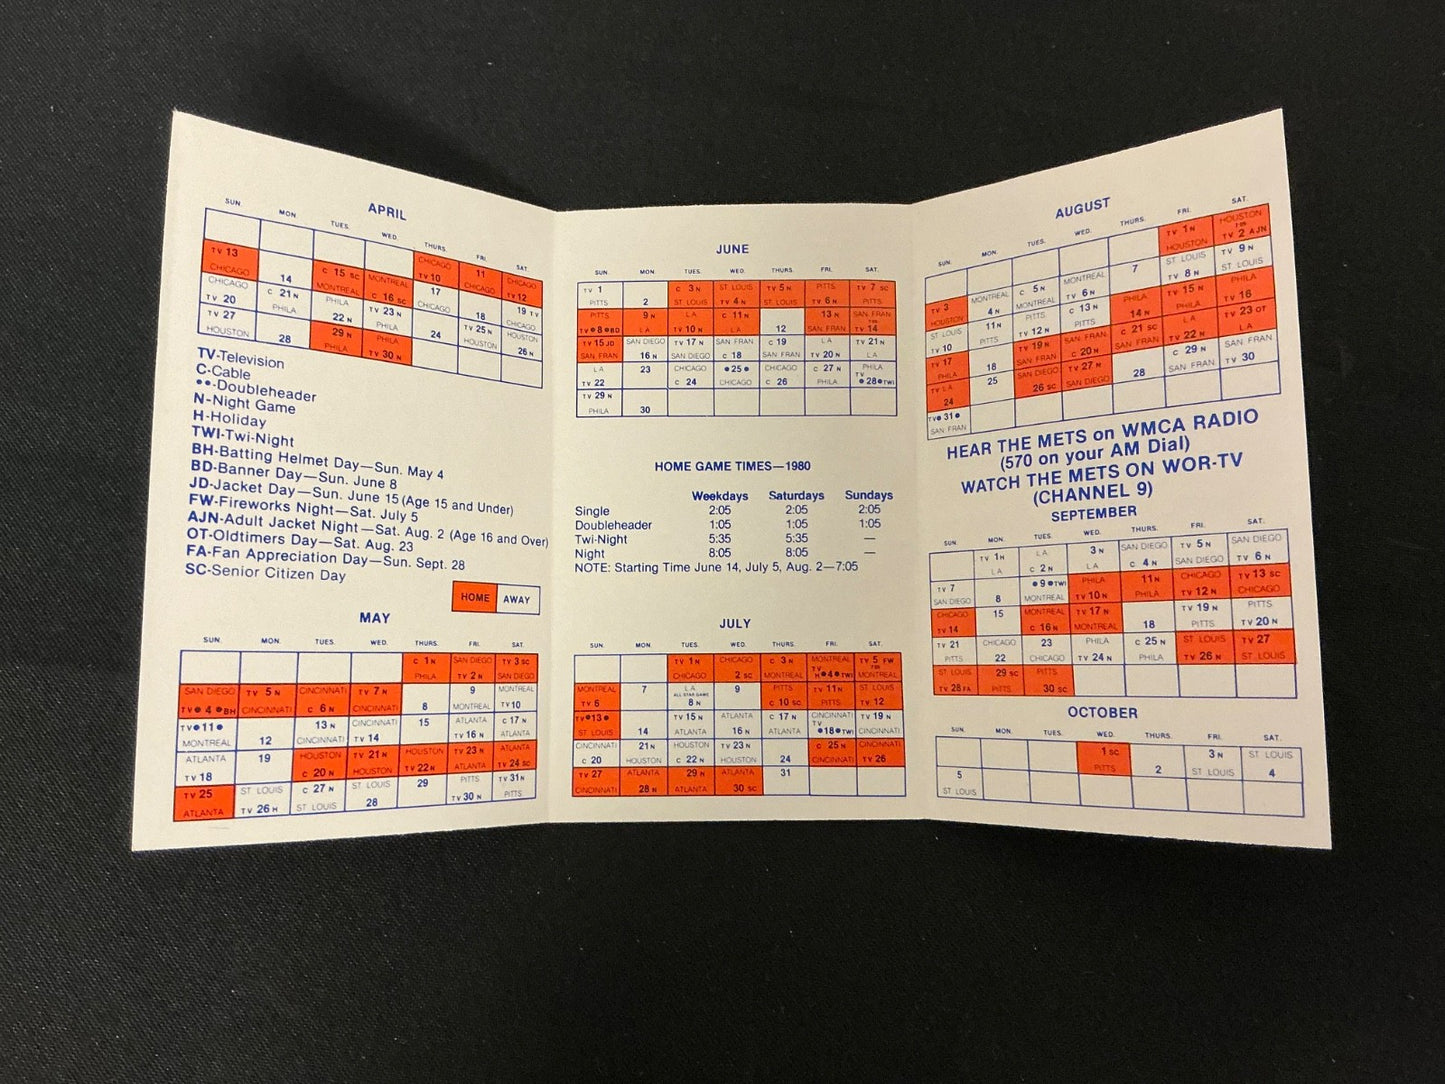 APRIL
SUN. MON. TUES. WED. THURS. FRI. SAT.
CHICAGO TV 10
11 CHICAGO
CHICAGO TV 12
TV 13 CHICAGO
14
C 15 SC MONTREAL
MONTREAL C 16 SC
17
18 CHICAGO
19 TV CHICAGO
CHICAGO TV 20
C 21 N PHILA
PHILA 22 N
TV 23 N PHILA
24
TV 25 N HOUSTON
HOUSTON 26 N
TV 27 HOUSTON
28
29 N PHILA
PHILA TV 30 N
TV-Television
C-Cable
●●-Doubleheader
N-Night Game
H-Holiday
TWI-Twi-Night
BH-Batting Helmet Day—Sun. May 4
BD-Banner Day—Sun. June 8
JD-Jacket Day—Sun. June 15 (Age 15 and Under)
FW-Fireworks Night—Sat. July 5
AJN-Adult Jacket Night—Sat. Aug. 2 (Age 16 and Over)
OT-Oldtimers Day—Sat. Aug. 23
FA-Fan Appreciation Day—Sun. Sept. 28
SC-Senior Citizen Day
HOME AWAY
MAY
SUN. MON. TUES. WED. THURS. FRI. SAT.
C 1 N PHILA
SAN DIEGO TV 2 N
TV 3 SC SAN DIEGO
SAN DIEGO TV● 4 ●BH
TV 5 N CINCINNATI
CINCINNATI C 6 N
TV 7 N CINCINNATI
8
9 MONTREAL
MONTREAL TV 10
TV●11● MONTREAL
12
13 N CINCINNATI
CINCINNATI TV 14
15
ATLANTA TV 16 N
C 17 N ATLANTA
ATLANTA TV 18
19
HOUSTON C 20 N
TV 21 N HOUSTON
HOUSTON TV 22 N
TV 23 N ATLANTA
ATLANTA TV 24 SC
TV 25 ATLANTA
ST LOUIS TV 26 H
C 27 N ST LOUIS
ST LOUIS 28
29
PITTS TV 30 N
TV 31 N PITTS
JUNE
SUN. MON. TUES. WED. THURS. FRI. SAT.
TV 1 PITTS
2
C 3 N ST LOUIS
ST LOUIS TV 4 N
TV 5 N ST LOUIS
PITTS TV 6 N
TV 7 SC PITTS
PITTS TV●8●BD
9 N LA
LA TV 10 N
C 11 N LA
12
13 N SAN FRAN
SAN FRAN 7:05 TV 14
TV 15 JD SAN FRAN
SAN DIEGO 16 N
TV 17 N SAN DIEGO
SAN FRAN C 18
C 19 SAN FRAN
LA TV 20 N
TV 21 N LA
LA TV 22
23
CHICAGO C 24
●25● CHICAGO
CHICAGO C 26
C 27 N PHILA
PHILA TV ●28●TWI
TV 29 N PHILA
30
HOME GAME TIMES—1980
Weekdays Saturdays Sundays
Single 2:05 2:05 2:05
Doubleheader 1:05 1:05 1:05
Twi-Night 5:35 5:35 —
Night 8:05 8:05 —
NOTE: Starting Time June 14, July 5, Aug. 2—7:05
JULY
SUN. MON. TUES. WED. THURS. FRI. SAT.
TV 1 N CHICAGO
CHICAGO 2 SC
C 3 N MONTREAL
MONTREAL TV H●4●TWI
TV 5 FW 7:05 MONTREAL
MONTREAL TV 6
7
L.A. ALL STAR GAME 8 N
9
PITTS C 10 SC
TV 11 N PITTS
ST LOUIS TV 12
TV●13● ST LOUIS
14
TV 15 N ATLANTA
ATLANTA 16 N
C 17 N ATLANTA
CINCINNATI TV ●18●TWI
TV 19 N CINCINNATI
CINCINNATI C 20
21 N HOUSTON
HOUSTON C 22 N
TV 23 N HOUSTON
24
C 25 N CINCINNATI
CINCINNATI TV 26
TV 27 CINCINNATI
ATLANTA 28 N
29 N ATLANTA
ATLANTA 30 SC
31
AUGUST
SUN. MON. TUES. WED. THURS. FRI. SAT.
TV 1 N HOUSTON
HOUSTON 7:05 TV 2 AJN
TV 3 HOUSTON
MONTREAL 4 N
C 5 N MONTREAL
MONTREAL TV 6 N
7
ST LOUIS TV 8 N
TV 9 N ST LOUIS
ST LOUIS TV 10
11 N PITTS
PITTS TV 12 N
C 13 N PITTS
PHILA 14 N
TV 15 N PHILA
PHILA TV 16
TV 17 PHILA
18
TV 19 N SAN FRAN
SAN FRAN C 20 N
C 21 SC SAN FRAN
LA TV 22 N
TV 23 OT LA
TV LA 24
25
SAN DIEGO 26 SC
TV 27 N SAN DIEGO
28
C 29 N SAN FRAN
SAN FRAN TV 30
TV●31● SAN FRAN
HEAR THE METS on WMCA RADIO
(570 on your AM Dial)
WATCH THE METS ON WOR-TV
(CHANNEL 9)
SEPTEMBER
SUN. MON. TUES. WED. THURS. FRI. SAT.
TV 1 N LA
LA C 2 N
3 N LA
SAN DIEGO C 4 N
TV 5 N SAN DIEGO
SAN DIEGO TV 6 N
TV 7 SAN DIEGO
8
●9●TWI MONTREAL
PHILA TV 10 N
11 N PHILA
CHICAGO TV 12 N
TV 13 SC CHICAGO
CHICAGO TV 14
15
MONTREAL C 16 N
TV 17 N MONTREAL
18
TV 19 N PITTS
PITTS TV 20 N
TV 21 PITTS
CHICAGO 22
23 CHICAGO
PHILA TV 24 N
C 25 N PHILA
ST LOUIS TV 26 N
TV 27 ST LOUIS
TV 28 FA
29 SC PITTS
PITTS 30 SC
OCTOBER
SUN. MON. TUES. WED. THURS. FRI. SAT.
1 SC PITTS
2
3 N ST LOUIS
ST LOUIS 4
5 ST LOUIS